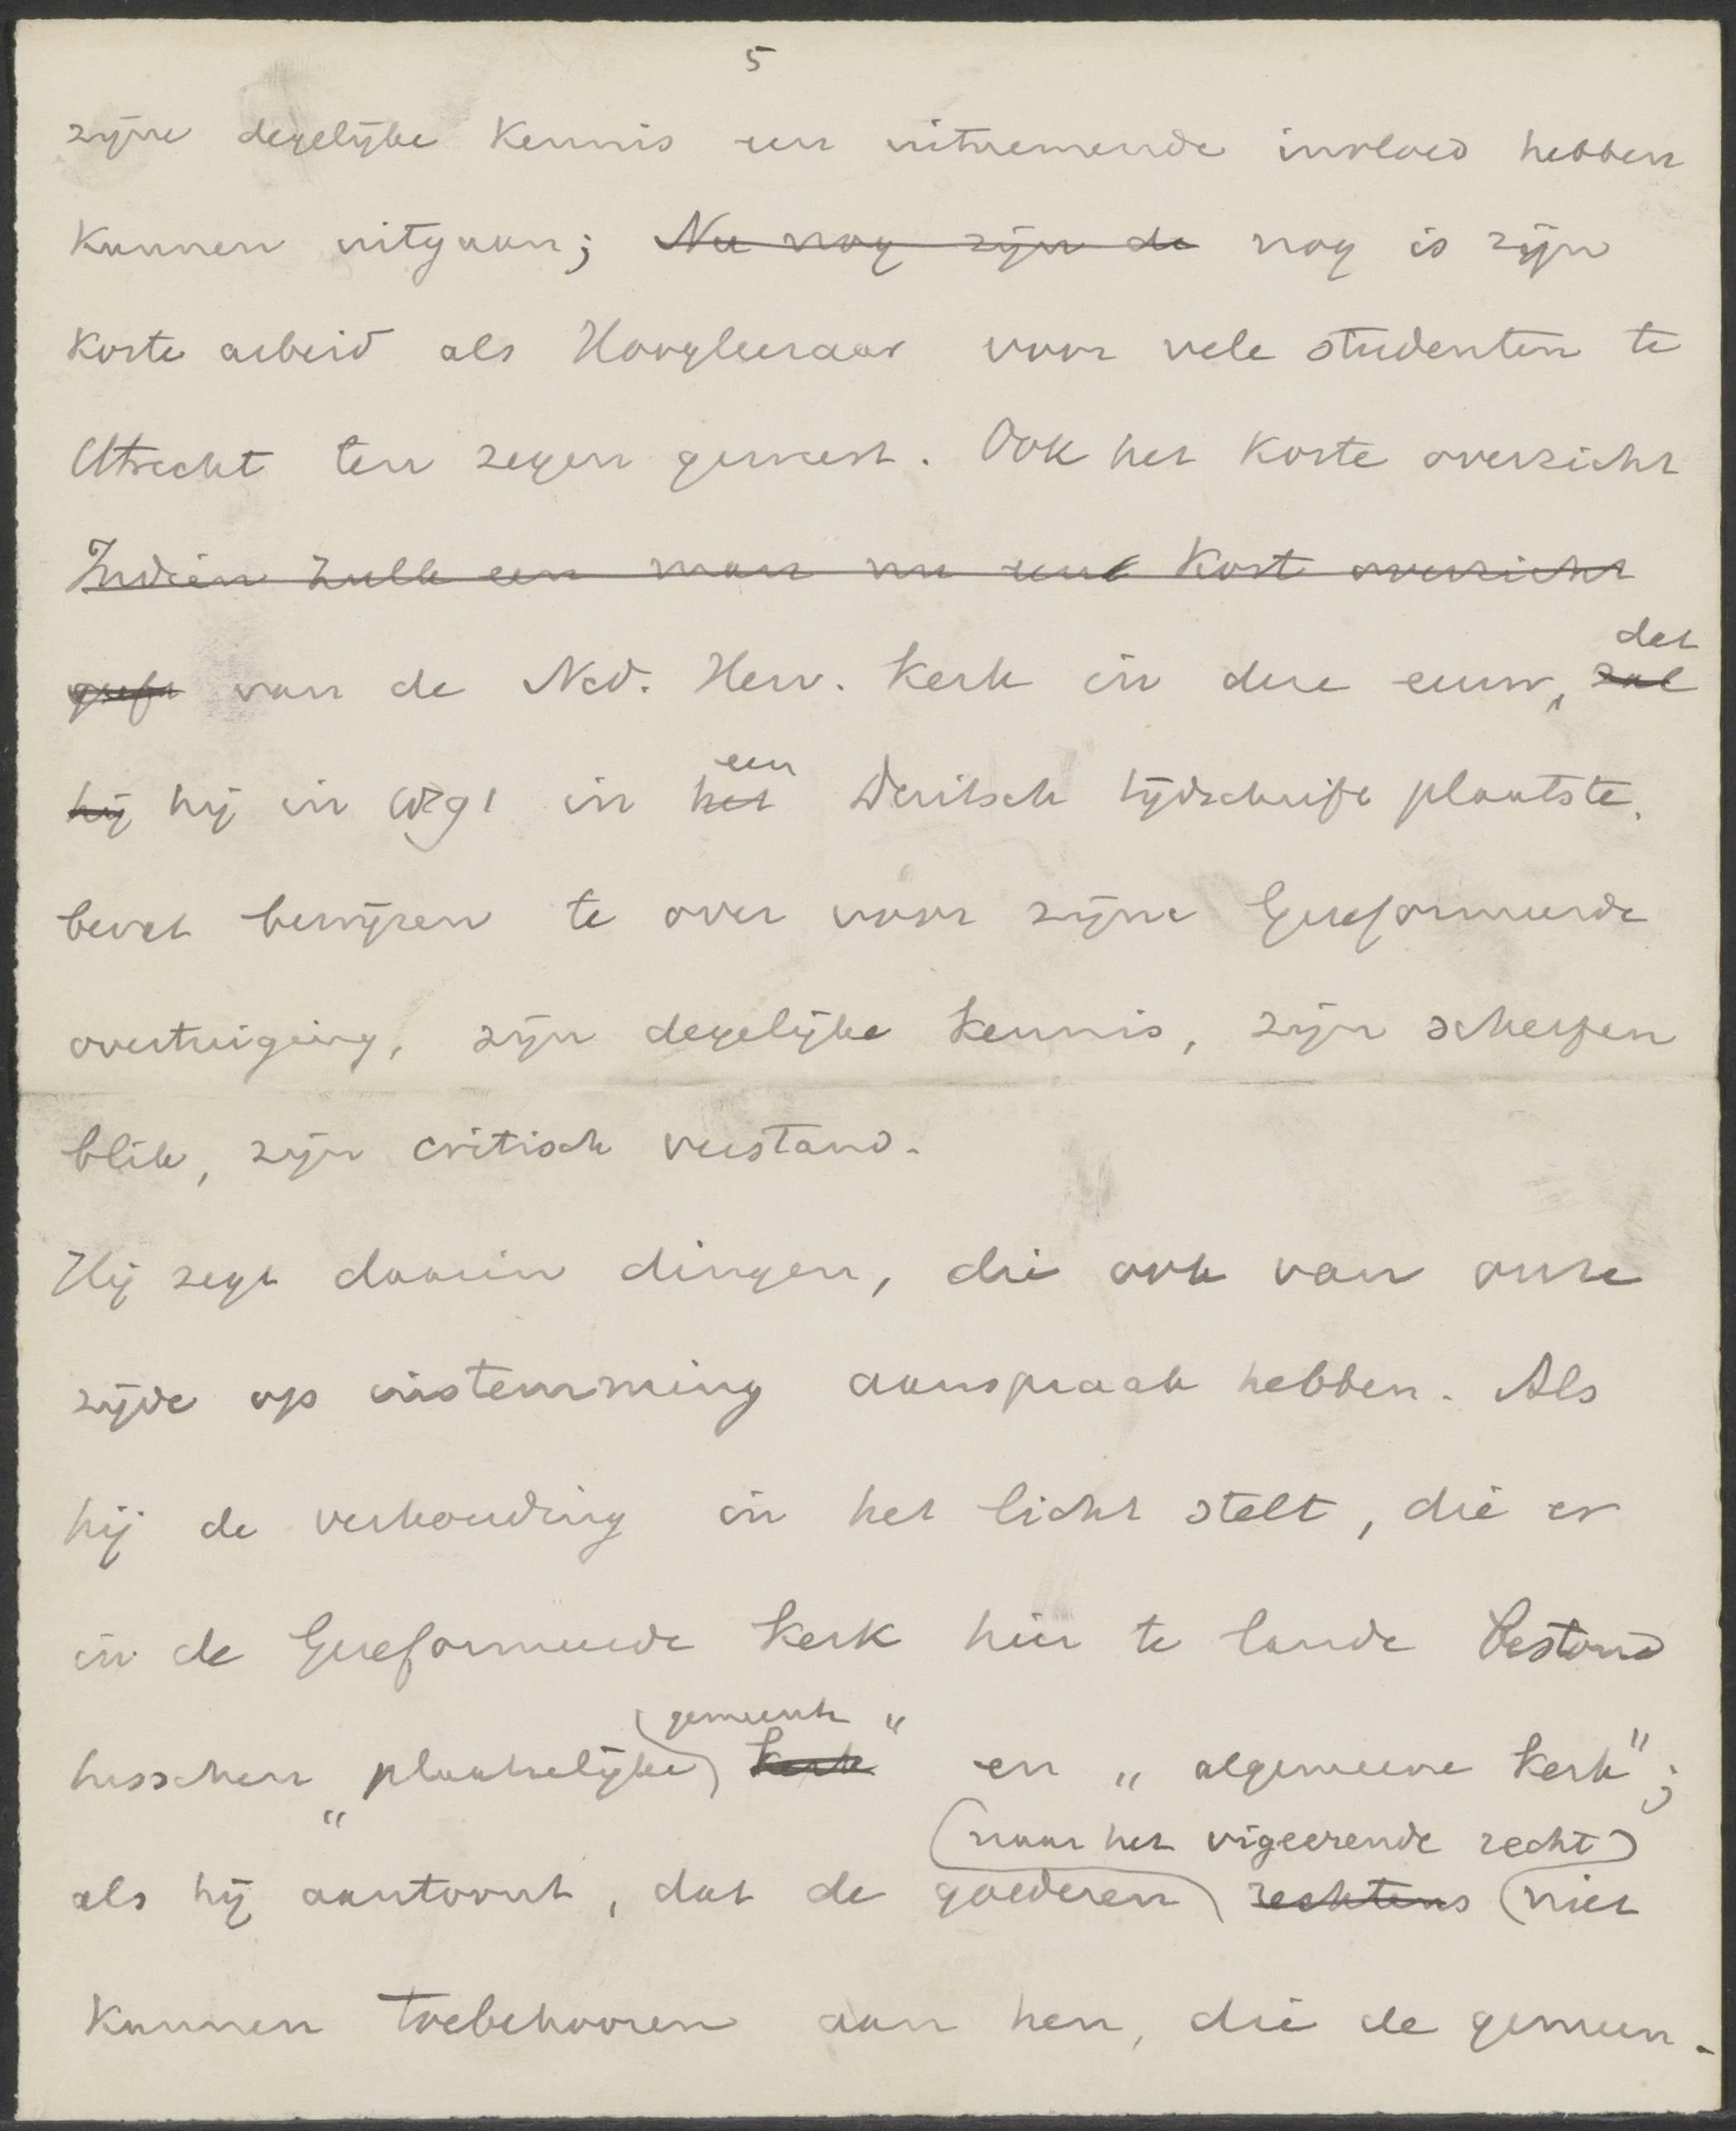 5
zijne degelijke kennis een uitnemende invloed hebben
kunnen uitgaan; Nu nog zijn de nog is zijn
korte arbeid als Hoogleeraar voor vele studenten te
Utrecht ten zegen geweest. Ook het korte overzicht
Indien zulk een man nu een kort overzicht
geeft van de Ned. Herv. Kerk in deze eeuw, zal
dat
hij hij in in het Duitsch tijdschrift plaatste,
een
bevat bewijzen te over voor zijne Gereformeerde
overtuiging, zijn degelijke kennis, zijn scherpen
blik, zijn critisch verstand.
Hij zegt daarin dingen, die ook van onze
zijde op instemming aanspraak hebben. Als
hij de verhouding in het licht stelt, die er
in de Gereformeerde Kerk hier te lande bestond
gemeente "
tusschen "plaatselijke kerk en „algemeene Kerk";
(naar het vigeerende recht)
als hij aantoont, dat de goederen rechtens niet
kunnen toebehooren aan hen, die de gemeen-